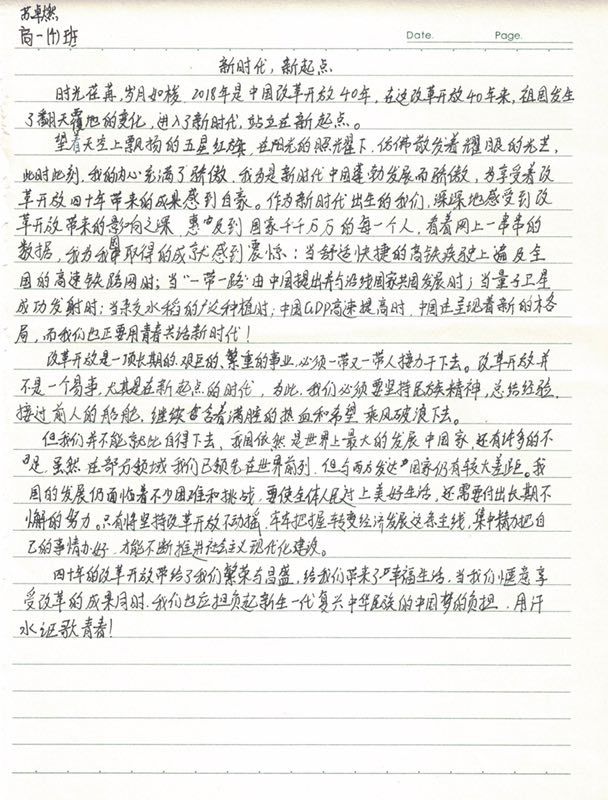 苏卓燃
高一(4)班
Date. Page.
新时代,新起点
时光荏苒,岁月如梭,2018年是中国改革开放40年,在这改革开放40年来,祖国发生
了翻天覆地的变化,进入了新时代,站立在新起点。
望着天空上飘扬的五星红旗,在阳光的照耀下,仿佛散发着耀眼的光芒,
此时此刻,我的内心充满了骄傲,我为是新时代中国蓬勃发展而骄傲,为享受着改
革开放四十年带来的成果感到自豪。作为新时代出生的我们,深深地感受到改
革开放带来的影响之深,惠及到国家千千万万的每一个人,看着网上一串串的
数据,我为我国取得的成就感到震惊:当舒适快捷的高铁疾驶上遍及全
国的高速铁路网时;当“一带一路”由中国提出并与沿线国家共同发展时;当量子卫星
成功发射时;当杂交水稻的广泛种植时;中国GDP高速提高时,中国正呈现着新的格
局,而我们也正要用青春共铸新时代!
改革开放是一项长期的、艰巨的、繁重的事业,必须一带又一带人接力干下去。改革开放并
不是一个易事,尤其是在新起点的时代,为此,我们必须要坚持民族精神,总结经验,
接过前人的船舵,继续含着满腔的热血和希望乘风破浪下去。
但我们并不能就此自得下去,我国依然是世界上最大的发展中国家,还有许多的不
足,虽然在部分领域我们已领先在世界前列,但与西方发达国家仍有较大差距。我
国的发展仍面临着不少困难和挑战,要使全体人民过上美好生活,还需要付出长期不
懈的努力。只有将坚持改革开放不动摇,牢牢把握转变经济发展这条主线,集中精力把自
己的事情办好,才能不断推进社会主义现代化建设。
四十年的改革开放带给了我们繁荣与昌盛,给我们带来了幸福生活,当我们惬意享
受改革的成果同时,我们也应担负起新生一代复兴中华民族的中国梦的负担,用汗
水讴歌青春!